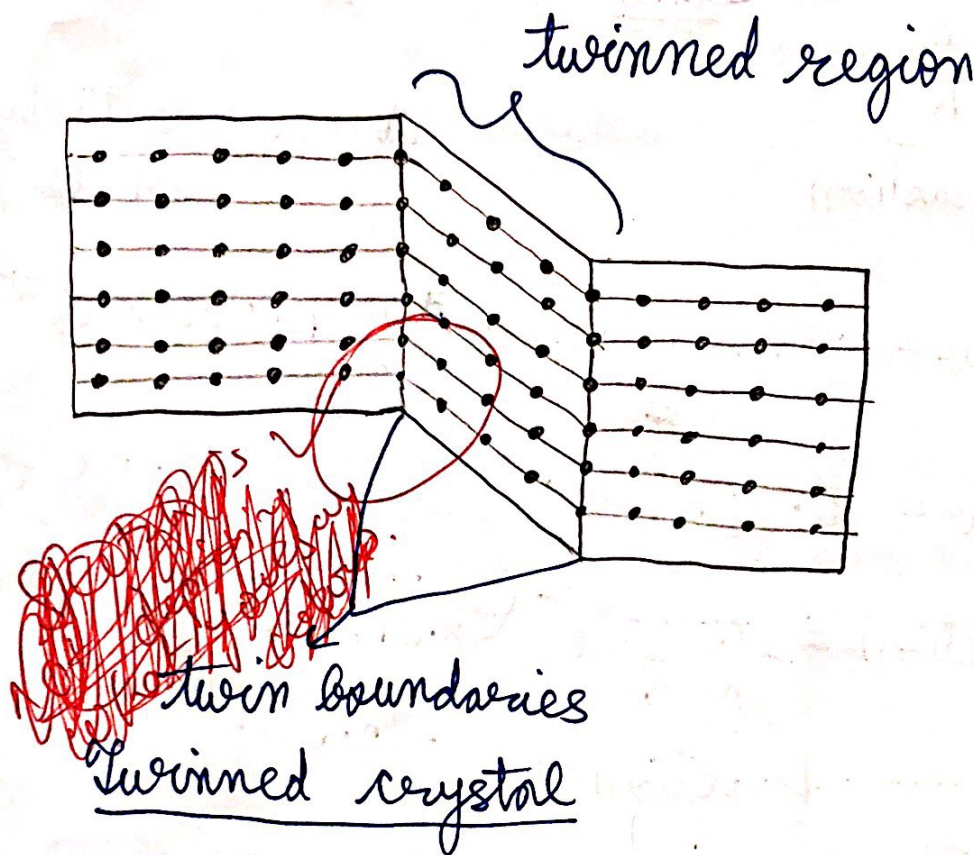 twinned region
twin boundaries
Twinned crystal